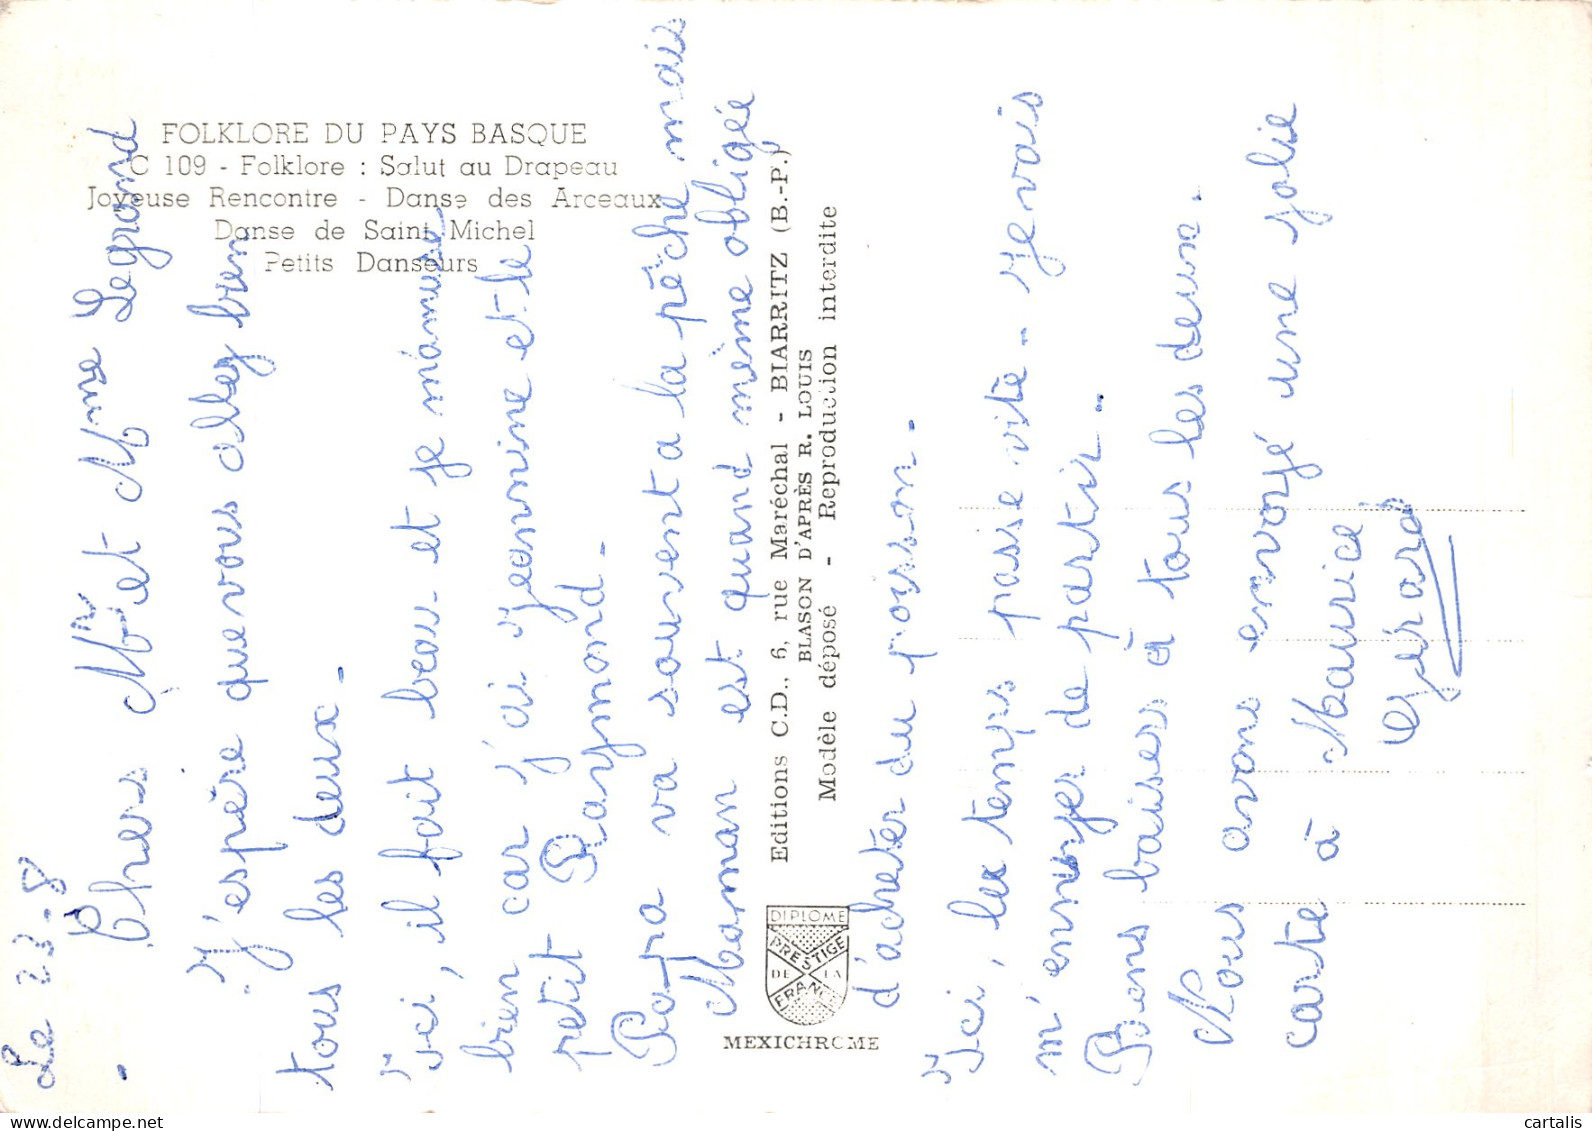 FOLKLORE DU PAYS BASQUE
C 109 - Folklore : Salut au Drapeau
Joyeuse Rencontre - Danse des Arceaux
Danse de Saint Michel
Petits Danseurs
Editions C.D., 6, rue Maréchal - BIARRITZ (B.-P.)
BLASON D'APRÈS R. LOUIS
Modèle déposé - Reproduction interdite
DIPLOME
PRESTIGE
DE LA
FRANCE
MEXICHROME
Le 23-8
Chers Mr et Mme Legrand
J'espère que vous allez bien
tous les deux.
Ici, il fait beau et je m'amuse
bien car j'ai Jeannine et le
petit Raymond.
Papa va souvent a la pêche mais
Maman est quand même obligée
d'acheter du poisson.
Ici, le temps passe vite - je vais
m'ennuyer de partir.
Bons baisers à tous les deux.
Nous avons envoyé une jolie
carte à Maurice
Gérard
cartalis